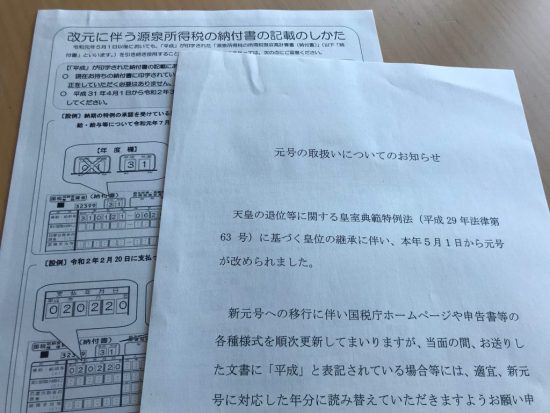 改元に伴う源泉所得税の納付書の記載のしかた
令和元年5月1日以後においても、「平成」が印字された「源泉所得税の納付
付書」といいます。)を引き続き使用すること
【「平成」が印字された納付書の記載にあ
○ 現在お持ちの納付書に印字されてい
正をしていただく必要はありません。
○ 平成31年4月1日から令和2年3
してください。
【設例】納期の特例の承認を受けている
給・給与等について令和元年7月
【年度欄】
31
(納付書)
32399
31
【設例】令和2年2月20日に支払っ
支払年月日
020220
(納付書)
元号の取扱いについてのお知らせ
天皇の退位等に関する皇室典範特例法(平成 29 年法律第
63 号)に基づく皇位の継承に伴い、本年5月1日から元号
が改められました。
新元号への移行に伴い国税庁ホームページや申告書等の
各種様式を順次更新してまいりますが、当面の間、お送りし
た文書に「平成」と表記されている場合等には、適宜、新元
号に対応した年分に読み替えていただきますようお願い申